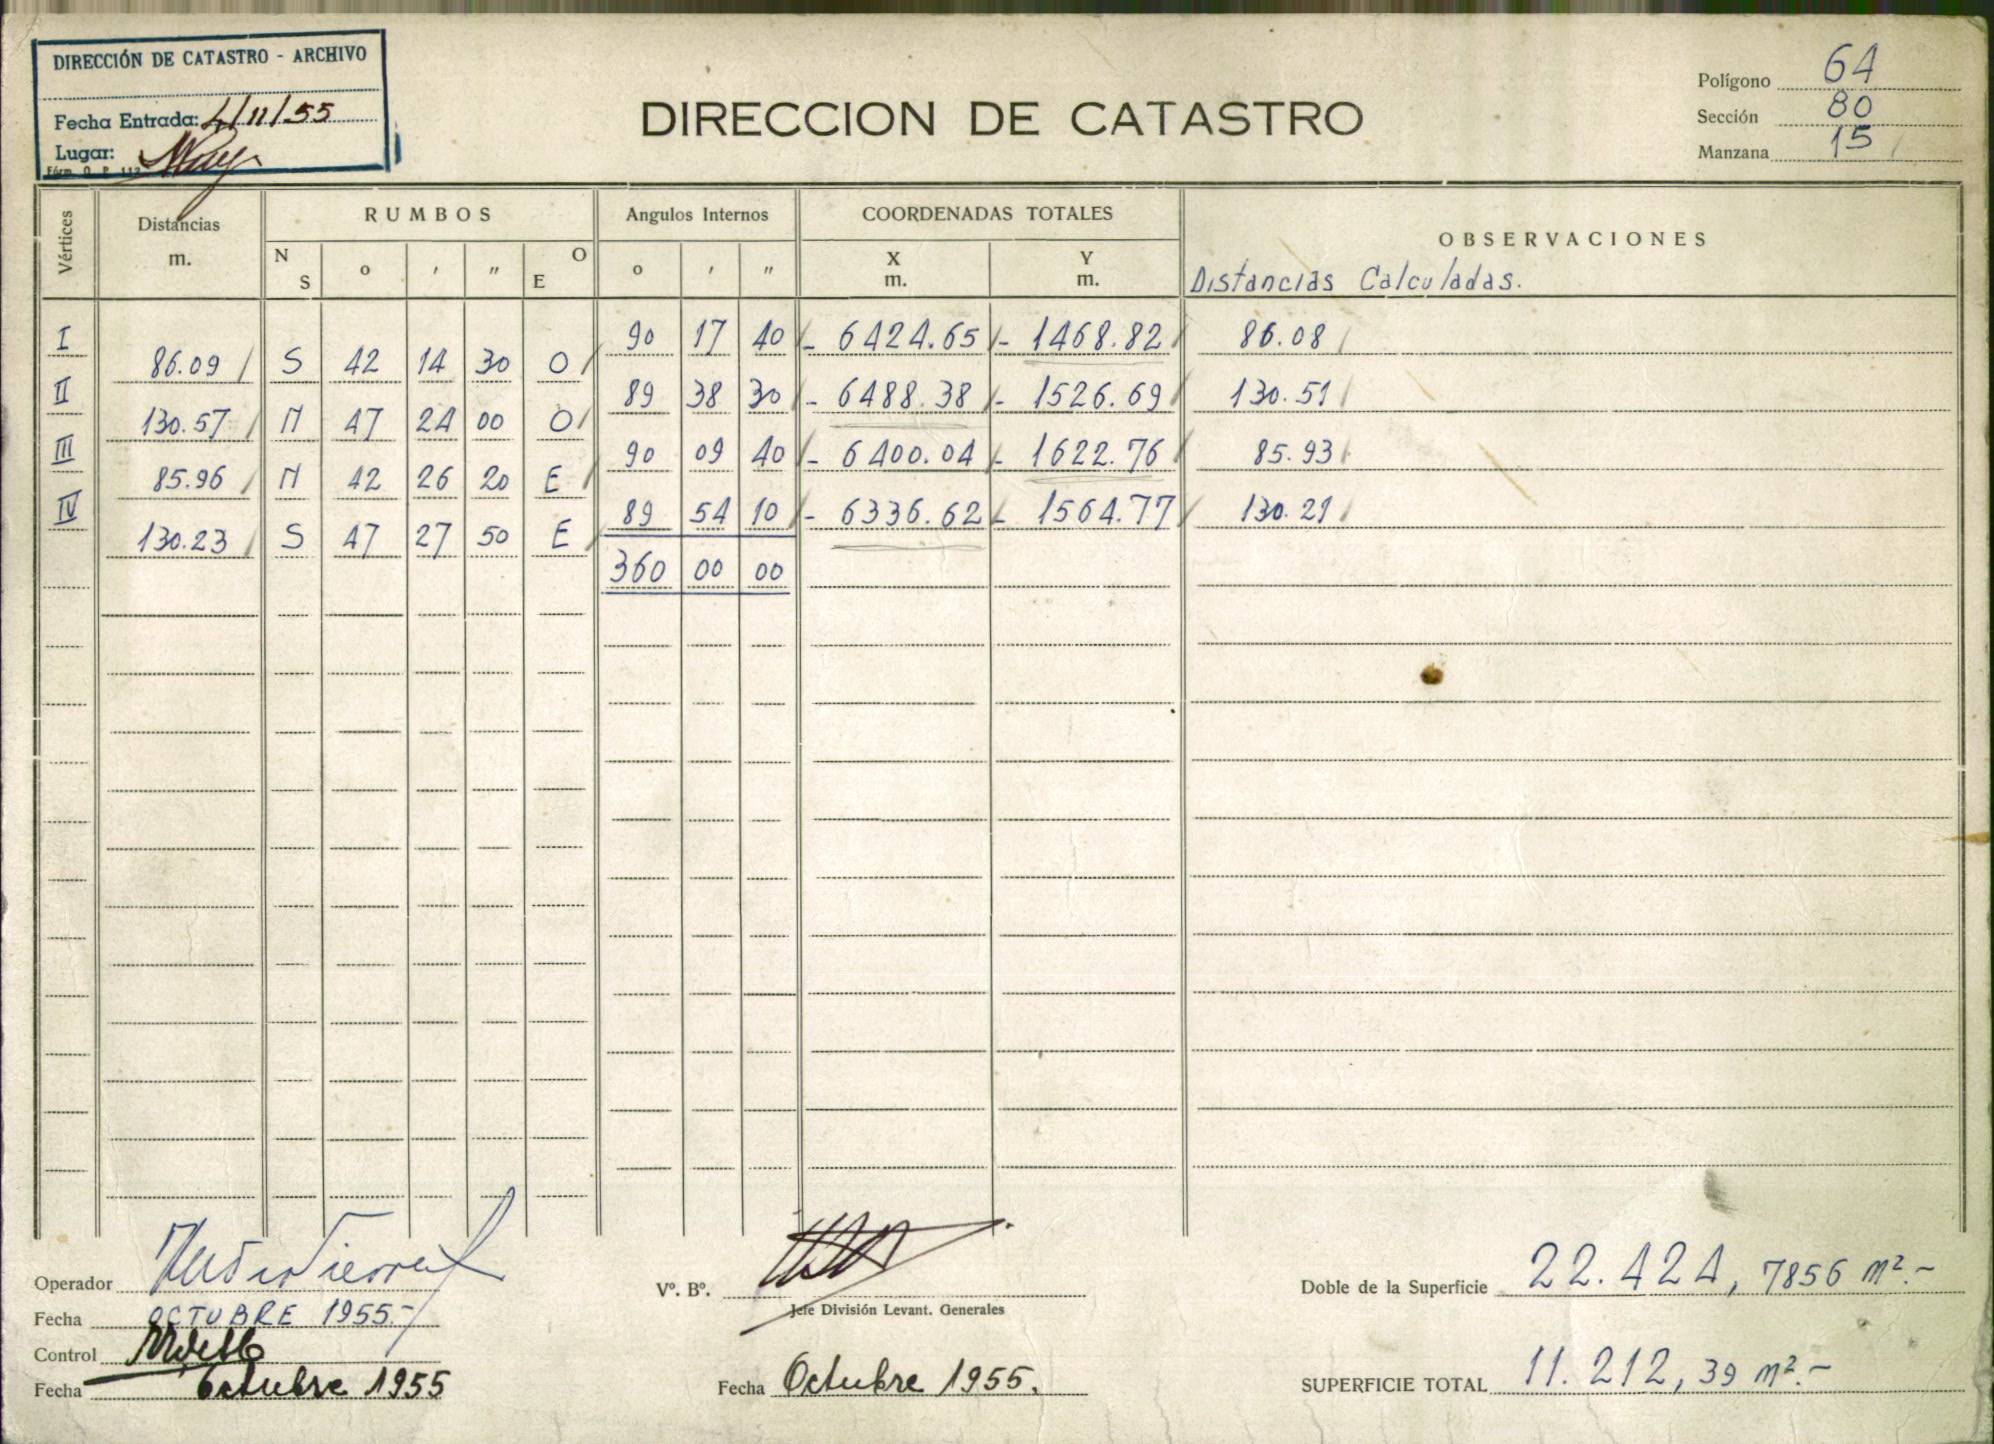 DIRECCIÓN DE CATASTRO - ARCHIVO
Fecha Entrada: 4/11/55
Lugar:
Fórm. O. P. 112
DIRECCION DE CATASTRO
Polígono 64
Sección 80
Manzana 15
Vértices Distancias m. RUMBOS Angulos Internos COORDENADAS TOTALES OBSERVACIONES
N S o ' " E O o ' " X m. Y m. Distancias Calculadas.
I 90 17 40 - 6424.65 - 1468.82 86.08
86.09 S 42 14 30 O
II 89 38 30 - 6488.38 - 1526.69 130.51
130.57 N 47 24 00 O
III 90 09 40 - 6400.04 - 1622.76 85.93
85.96 N 42 26 20 E
IV 89 54 10 - 6336.62 - 1564.77 130.21
130.23 S 47 27 50 E
360 00 00
Operador
Fecha OCTUBRE 1955.-
Control
Fecha Octubre 1955
Vº. Bº.
Jefe División Levant. Generales
Fecha Octubre 1955.
Doble de la Superficie 22.424, 7856 m².-
SUPERFICIE TOTAL 11.212, 39 m².-